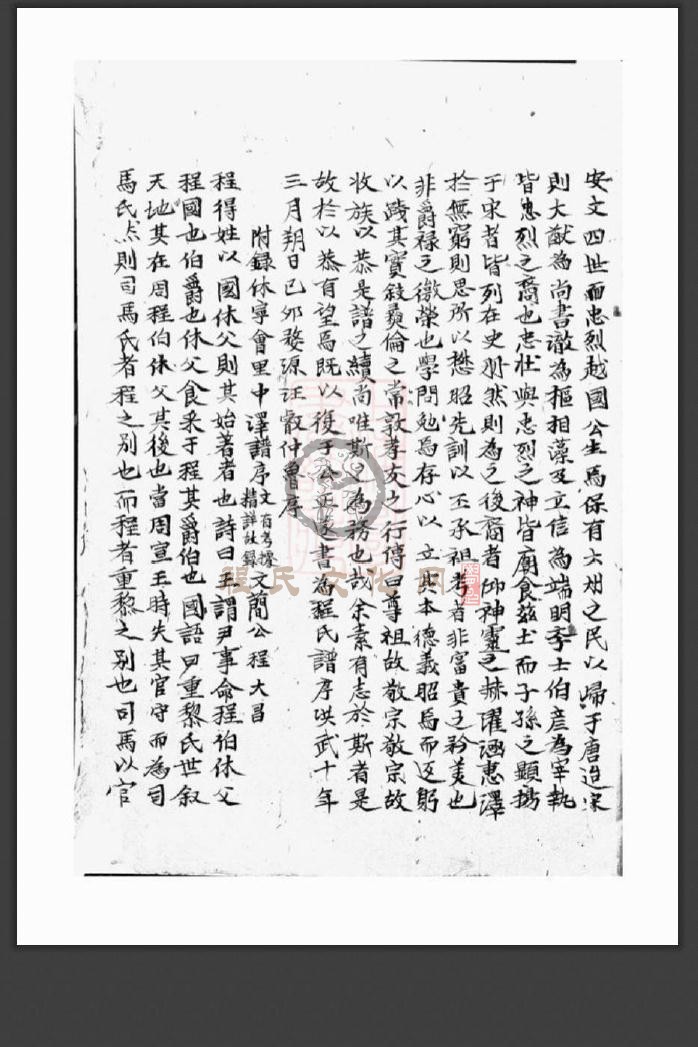 安文四世而忠烈越國公生焉保有六州之民以歸于唐迨宋
則大猷為尚書澈為樞相藻及立信為端明李士伯彦為宰執
皆忠烈之裔也忠壯與忠烈之神皆廟食兹土而子孫之顯
于宋者皆列在史册然則為之後裔者仰神靈之赫濯涵惠澤
於無窮則思所以懋昭先訓以丕承祖考者非富貴之矜美也
非爵禄之徼榮也學問勉焉存心以立其本德義昭焉而返躬
以踐其實敍彛倫之常敦孝友之行傳曰尊祖故敬宗敬宗故
收族以恭是譜之續尚唯斯之為務也哉余素有志於斯者是
故於以恭有望焉既以復于公正遂書為程氏譜序洪武十年
三月朔日己夘婺源汪叡仲魯序
附録休寧會里中澤譜序文有考據精詳故録文簡公程大昌
程得姓以國休父則其始著者也詩曰王謂尹事命程伯休父
程國也伯爵也休父食采于程其爵伯也國語曰重黎氏世叙
天地其在周程伯休父其後也當周宣王時失其官守而為司
馬氏然則司馬氏者程之别也而程者重黎之别也司馬以官
程氏文化网